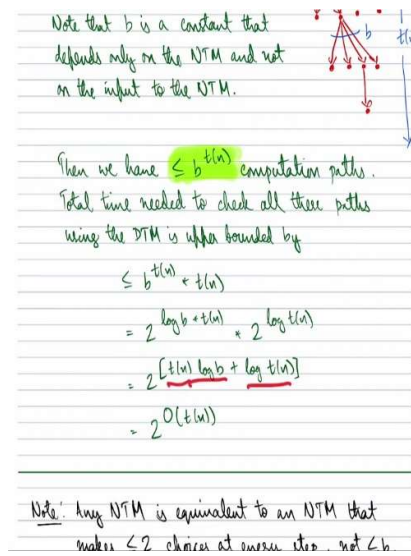 Note that b is a constant that
depends only on the NTM and not
on the input to the NTM.
b
Then we have ≤ b^t(n) computation paths.
Total time needed to check all these paths
using the DTM is upper bounded by
≤ b^t(n) * t(n)
= 2^log b * t(n) * 2^log t(n)
= 2^[t(n) log b + log t(n)]
= 2^O(t(n))
Note: Any NTM is equivalent to an NTM that
makes ≤ 2 choices at every step, not ≤ b